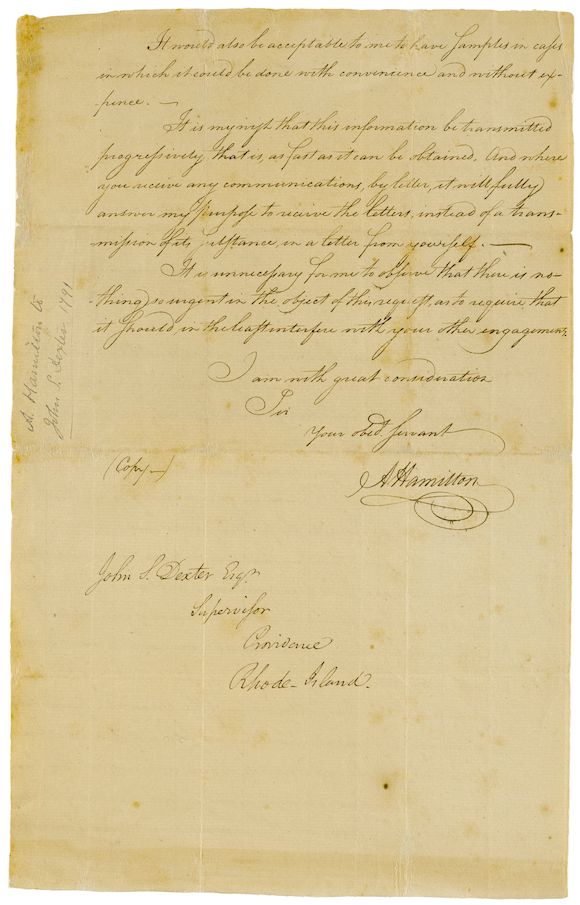 It would also be acceptable to me to have samples in cases
in which it could be done with convenience and without ex-
pence. —
It is my wish that this information be transmitted
progressively, that is, as fast as it can be obtained. And where
you receive any communications, by letter, it will fully
answer my purpose to receive the letters, instead of a trans-
mission of its substance, in a letter from yourself. —
It is unnecessary for me to observe that there is no-
thing so urgent in the object of this request, as to require that
it should in the least interfere with your other engagements.
I am with great consideration
Sir
Your obed Servant
(Copy —)
A Hamilton
John S. Dexter Esqr.
Supervisor
Providence
Rhode-Island.
A. Hamilton to
John S. Dexter 1791